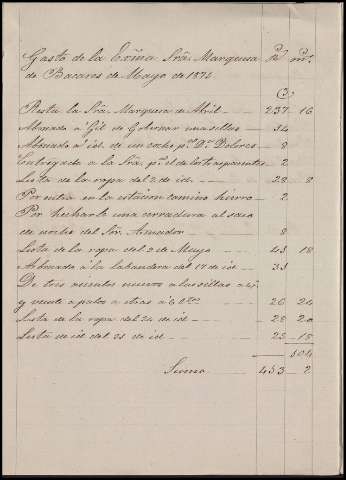 Gasto de la Exma Sra Marquesa Rs ms
de Bacares de Mayo de 1874
Resta la Sra Marquesa de Abril 237 16
Abonado a Gil de Gobernar unas sillas 34
Abonado a id. de un coche pa Da Dolores 8
Entregado a la Sra pa el de los tres parientes 2
Lista de la ropa del 2 de id. 28 8
Por entrar en la estacion camino hierro 2
Por hecharle una cerradura al saco
de noche del Sor Amador 8
Lista de la ropa del 9 de Mayo 43 18
Abonado a la labandera del 17 de id 33
De tres asientos nuevos a las sillas a 4
y veinte a palos a otras a 6
20 24
Lista de la ropa del 24 de id 28 20
Lista de id. del 31 de id 23 18
104
Suma 453 2